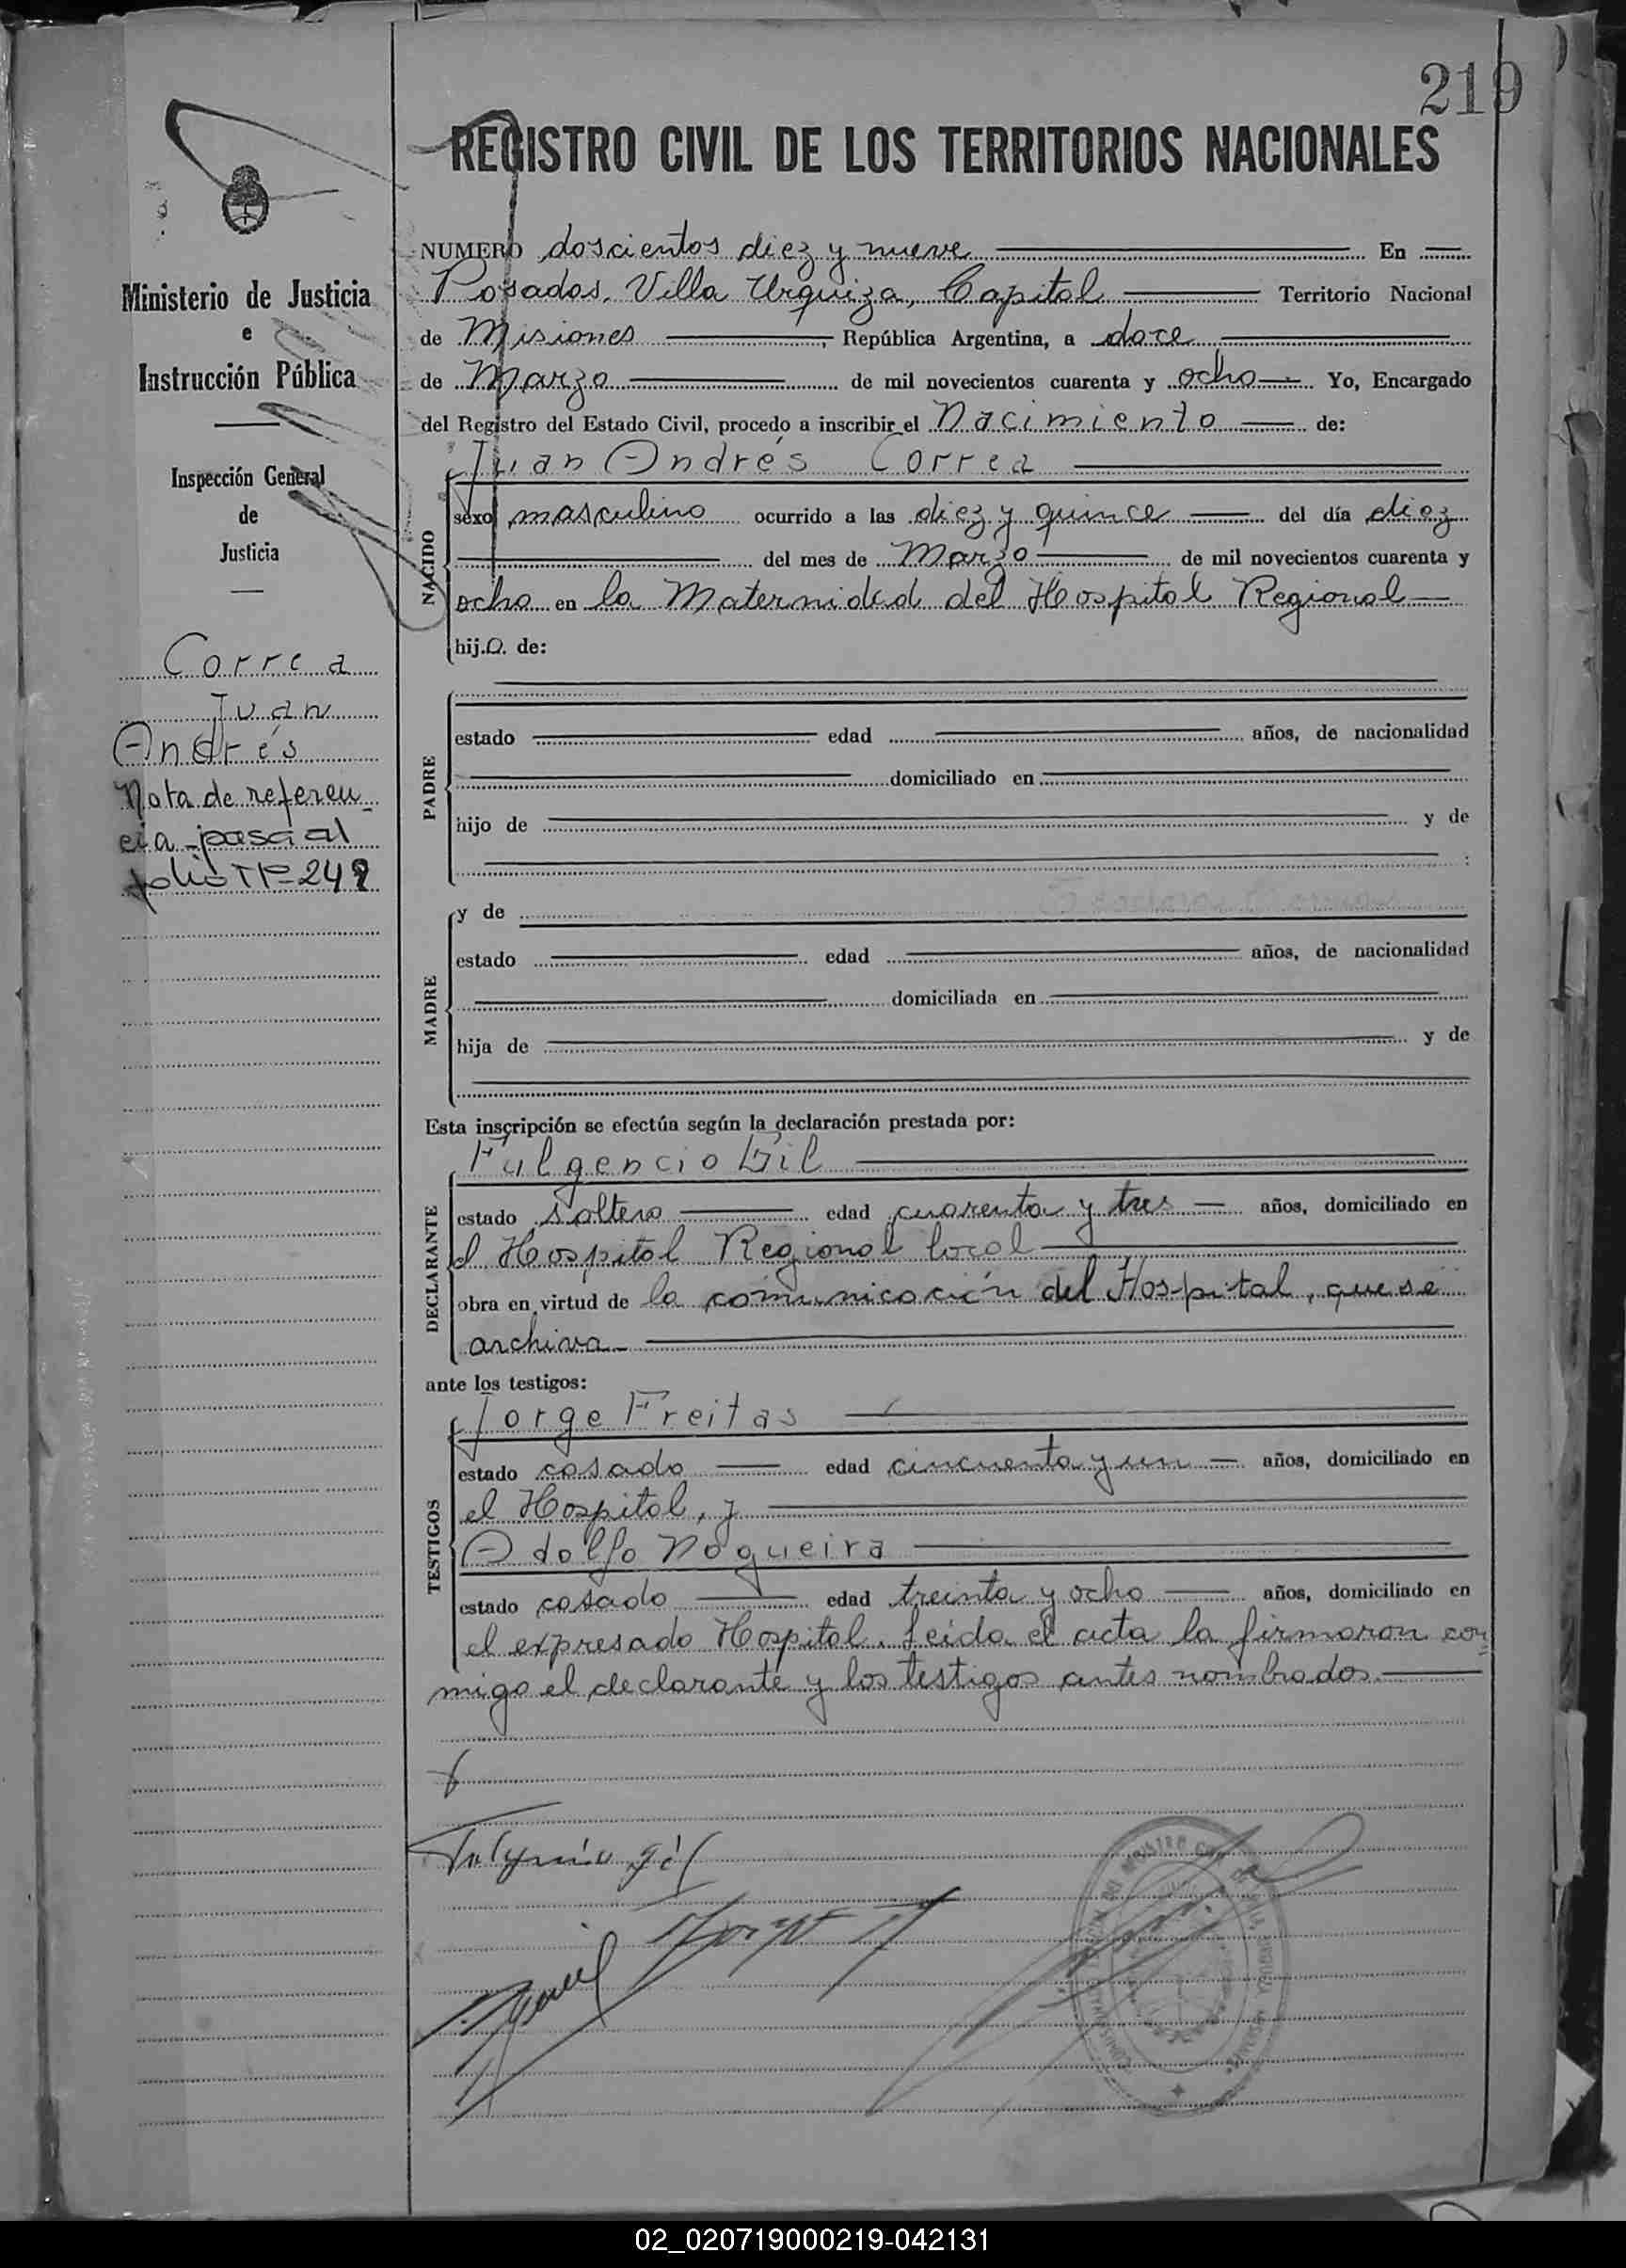 219
REGISTRO CIVIL DE LOS TERRITORIOS NACIONALES
Ministerio de Justicia
e
Instrucción Pública
Inspección General
de
Justicia
Correa
Juan
Andrés
Nota de referen-
cia
folio 242
NUMERO doscientos diez y nueve En
Posadas, Villa Urquiza, Capital Territorio Nacional
de Misiones, República Argentina, a doce
de Marzo de mil novecientos cuarenta y ocho Yo, Encargado
del Registro del Estado Civil, procedo a inscribir el Nacimiento de:
Juan Andrés Correa
NACIDO
sexo masculino ocurrido a las diez y quince del día diez
del mes de Marzo de mil novecientos cuarenta y
ocho en la Maternidad del Hospital Regional
hijo. de:
PADRE
estado edad años, de nacionalidad
domiciliado en
hijo de y de
:
MADRE
y de
estado edad años, de nacionalidad
domiciliada en
hija de y de
Esta inscripción se efectúa según la declaración prestada por:
Fulgencio Gil
DECLARANTE
estado soltero edad cuarenta y tres años, domiciliado en
el Hospital Regional local
obra en virtud de la comunicación del Hospital, que se
archiva
ante los testigos:
Jorge Freitas
TESTIGOS
estado casado edad cincuenta y un años, domiciliado en
el Hospital, y
Adolfo Nogueira
estado casado edad treinta y ocho años, domiciliado en
el expresado Hospital. Leída el acta la firmaron con
migo el declarante y los testigos antes nombrados.
02_020719000219-042131